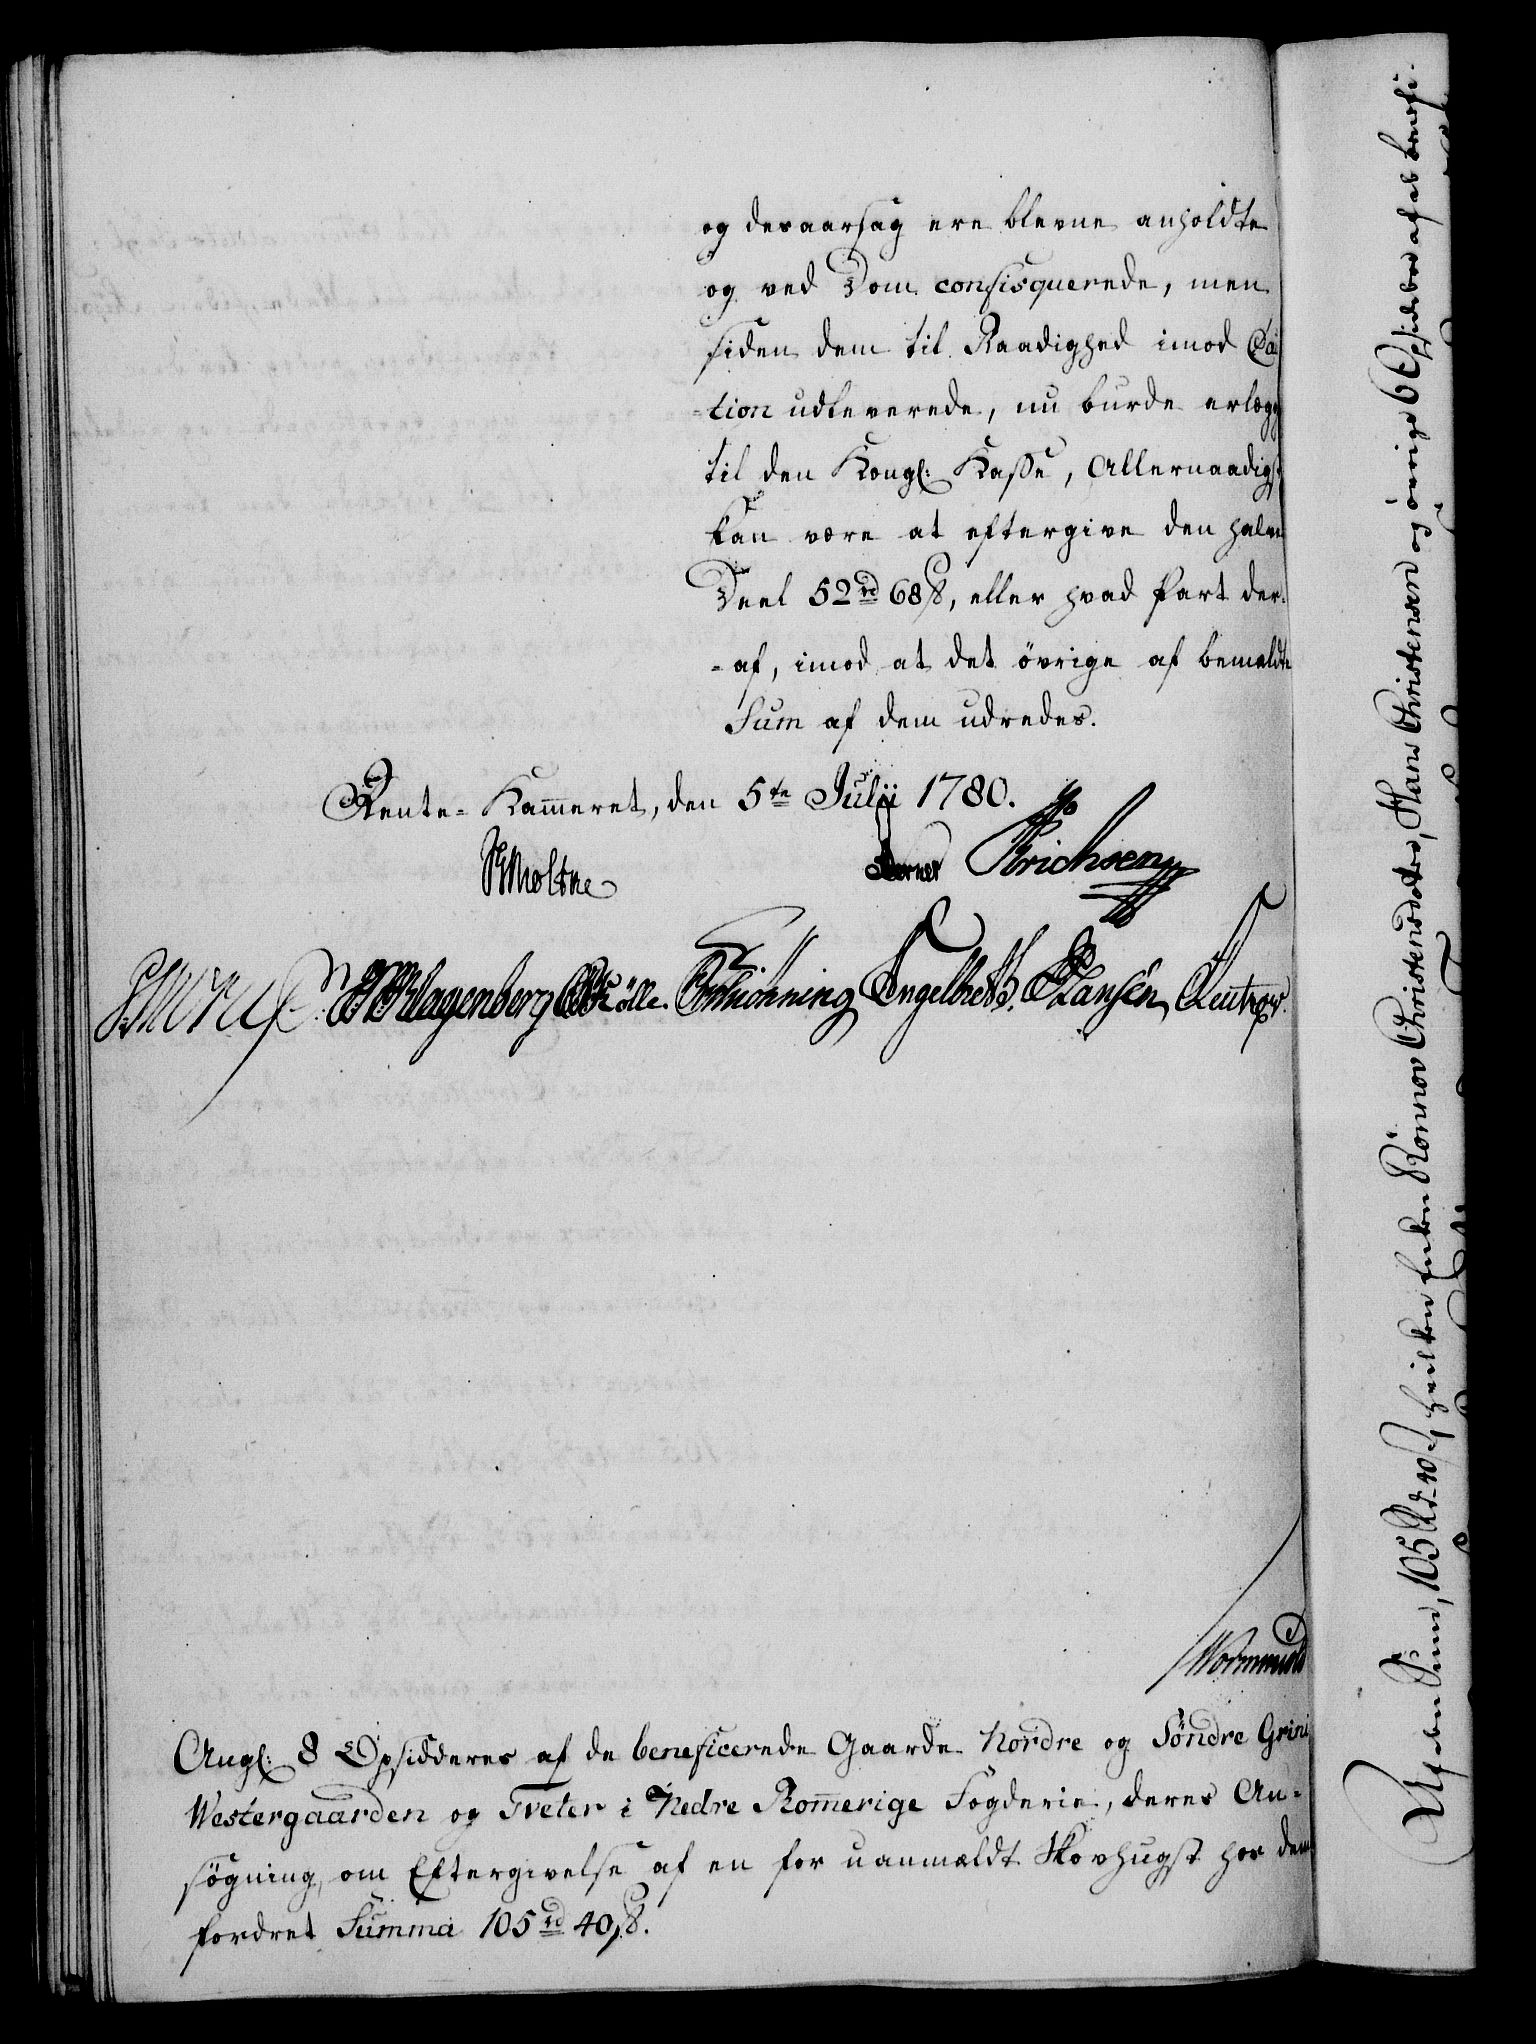 og desaarsag ere blevne anholdte
og ved Dom confisquerede, men
siden dem til Raadighed imod Cau
tion udleverede, nu burde erlægg
til den Kongl: Kasse, Allernaadigst
kan være at eftergive den halve
Deel 52 rd 68 ß, eller hvad Part der-
=af, imod at det øvrige af bemeldte
Sum af dem udredes.
Rente-Kammeret, den 5te Julii 1780.
Moltke Berner Erichsen
Klagenberg Kölle. Schiönning Engelbrett. Hansen Reutzow.
Wormvold
Angl: 8 Opsidderes af de beneficerede Gaarde Nordre og Søndre Grini
Westergaarden og Tveter i Nedre Romerige Fogderie, deres An-
søgning, om Eftergivelse af en for uanmældt Skovhugst hos dem
fordret Summa 105 rd 40 ß.
Sum, 105 Rd 40 ß, hvilken Enken Rönnov Christensdatter, Hans Christensen og øvrige 6 Opsiddere af et benefi-